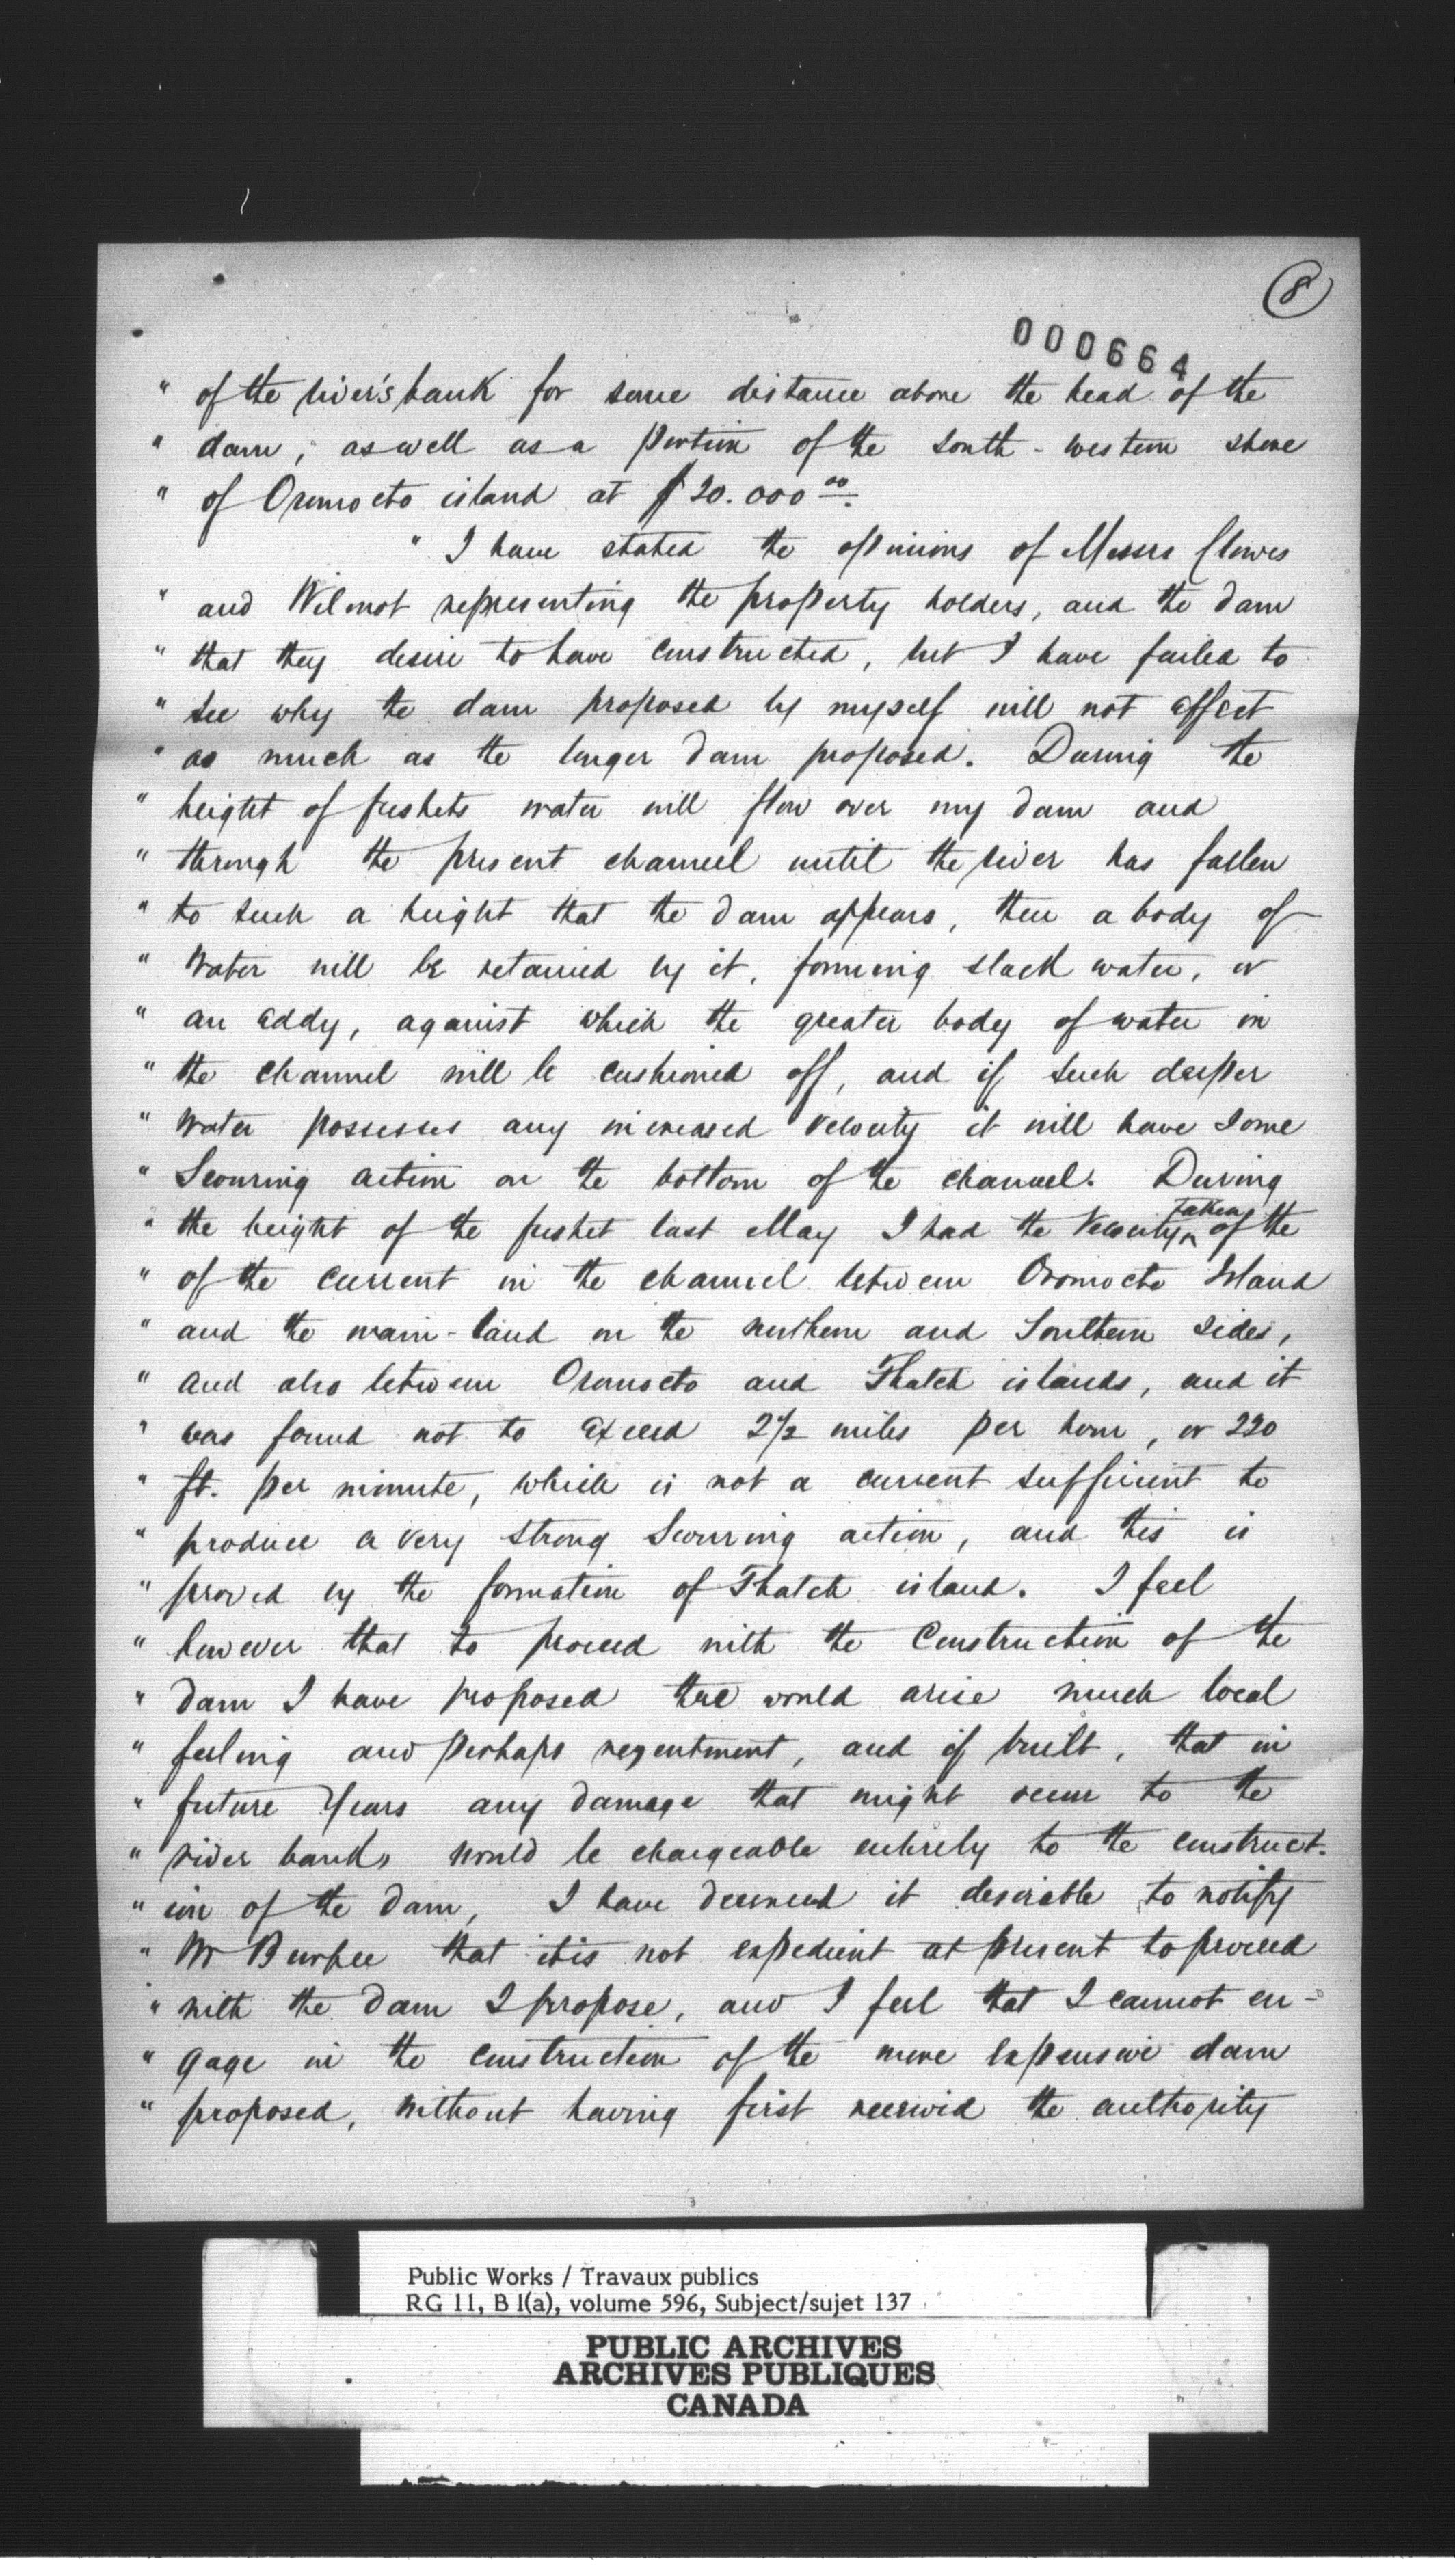 8
000664
" of the river's bank for some distance above the head of the
" dam; as well as a portion of the south-western shore
" of Oromocto island at $20.000.00
" I have stated the opinions of Messrs Clowes
" and Wilmot representing the property holders, and the dam
" that they desire to have constructed, but I have failed to
" see why the dam proposed by myself will not effect
" as much as the longer dam proposed. During the
" height of freshets water will flow over my dam and
" through the present channel until the river has fallen
" to such a height that the dam appears, then a body of
" water will be retained by it, forming slack water, or
" an eddy, against which the greater body of water in
" the channel will be cushioned off, and if such deeper
" water possesses any increased velocity it will have some
" Scouring action on the bottom of the channel. During
" the height of the freshet last May I had the velocity taken of the
" of the current in the channel between Oromocto Island
" and the main-land on the northern and Southern sides,
" and also between Oromocto and Thatch islands, and it
" was found not to exceed 2 1/2 miles per hour, or 220
" ft. per minute, which is not a current sufficient to
" produce a very strong Scouring action, and this is
" proved by the formation of Thatch island. I feel
" however that to proceed with the Construction of the
" dam I have proposed there would arise much local
" feeling and perhaps resentment, and if built, that in
" future years any damage that might occur to the
" river banks would be chargeable entirely to the construct-
" ion of the dam, I have deemed it desirable to notify
" Mr Burpee that it is not expedient at present to proceed
" with the dam I propose, and I feel that I cannot en-
" gage in the construction of the more expensive dam
" proposed, without having first received the authority
Public Works / Travaux publics
RG 11, B 1(a), volume 596, Subject/sujet 137
PUBLIC ARCHIVES
ARCHIVES PUBLIQUES
CANADA